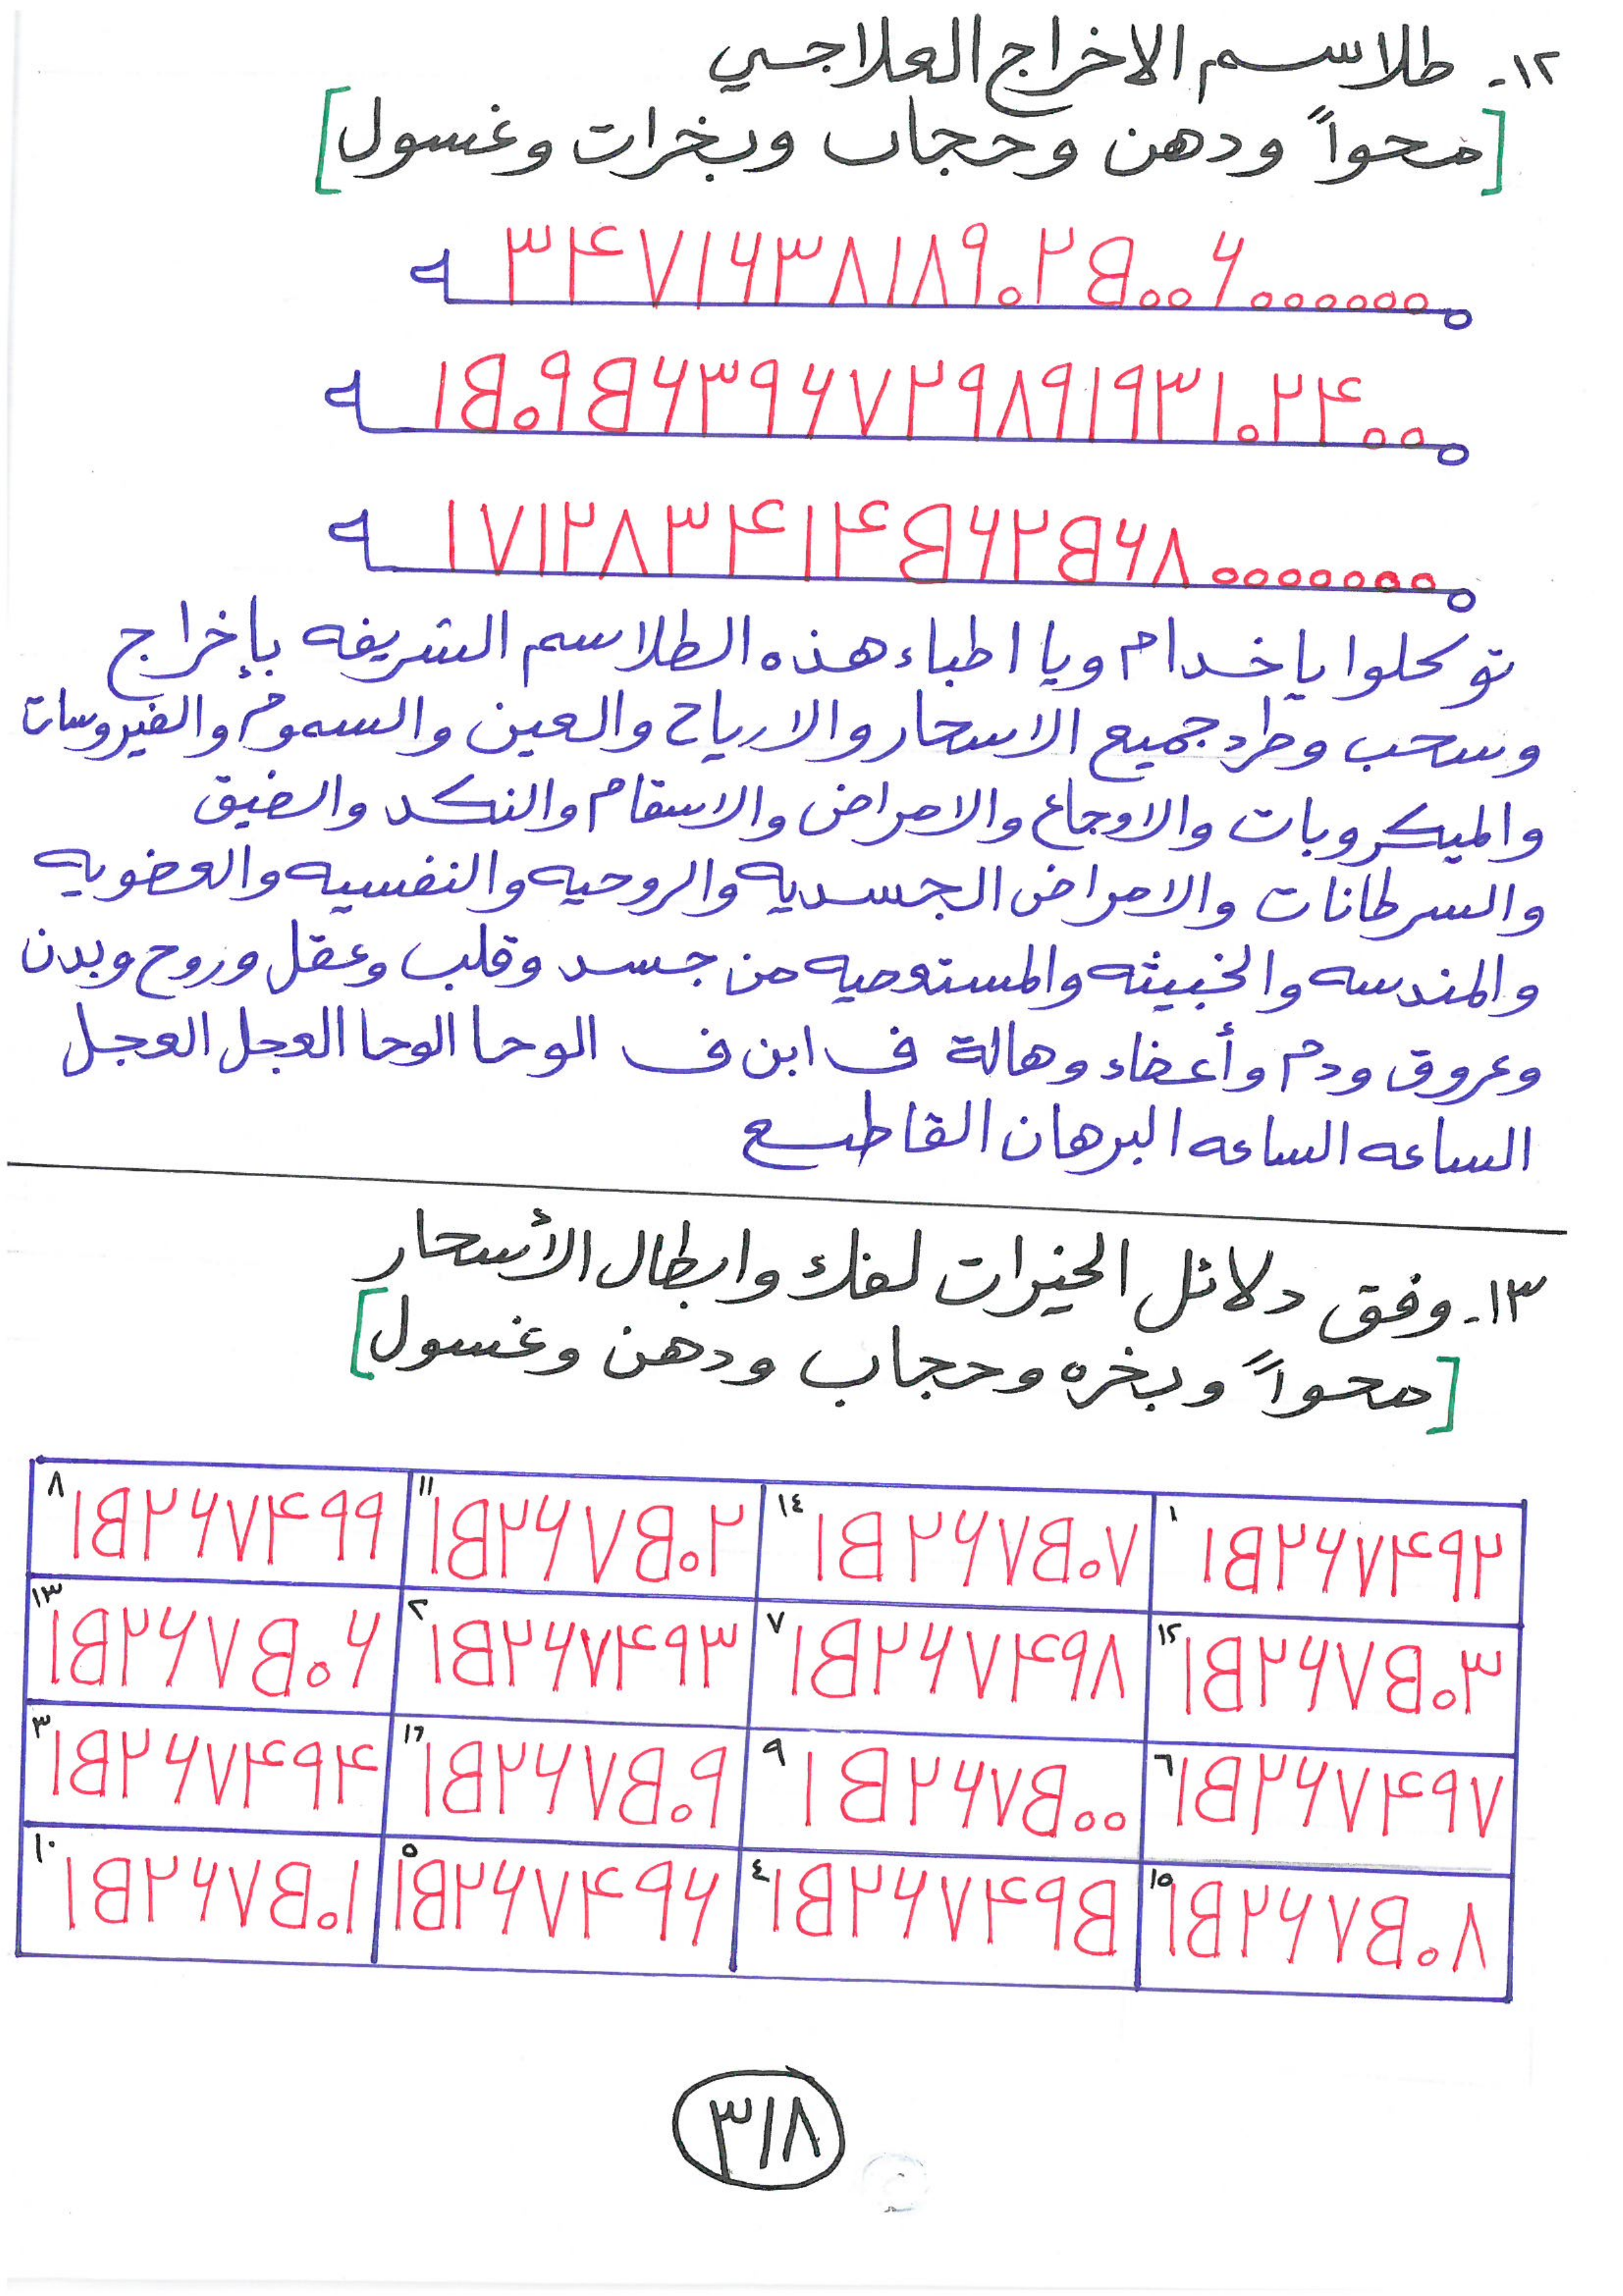 ١٢- طلاسم الاخراج العلاجي
[محواً ودهن وحجاب وبخرات وغسول]
٣۴٧١۶٣٨١٨٩٠٢۵٠٠۶٠٠٠٠٠٠
١۵٠٩۵۶٣٩۶٧٢٩٨٩١٩٣١٠٢۴٠٠
١٧١٢٨٣۴١۴۵۶٢۵۶٨٠٠٠٠٠٠٠
توكلوا ياخدام ويا اطباء هذه الطلاسم الشريفه بإخراج
وسحب وطرد جميع الاسحار والارياح والعين والسموم والفيروسات
والميكروبات والاوجاع والامراض والاسقام والنكد والضيق
والسرطانات والامراض الجسديه والروحيه والنفسيه والعضويه
والمندسه والخبيثه والمستعصيه من جسد وقلب وعقل وروح وبدن
وعروق ودم وأعضاء وهالة ف ابن ف الوحا الوحا العجل العجل
الساعه الساعه البرهان القاطع
١٣- وفق دلائل الخيرات لفك وابطال الأسحار
[محواً وبخره وحجاب ودهن وغسول]
١ ١۵٢۶٧۴٩٢ ١٤ ١۵٢۶٧۵٠٧ ١١ ١۵٢۶٧۵٠٢ ٨ ١۵٢۶٧۴٩٩
١٢ ١۵٢۶٧۵٠٣ ٧ ١۵٢۶٧۴٩٨ ٢ ١۵٢۶٧۴٩٣ ١٣ ١۵٢۶٧۵٠۶
٦ ١۵٢۶٧۴٩٧ ٩ ١۵٢۶٧۵٠٠ ١٦ ١۵٢۶٧۵٠٩ ٣ ١۵٢۶٧۴٩۴
١٥ ١۵٢۶٧۵٠٨ ٤ ١۵٢۶٧۴٩۵ ٥ ١۵٢۶٧۴٩۶ ١٠ ١۵٢۶٧۵٠١
٣١٨